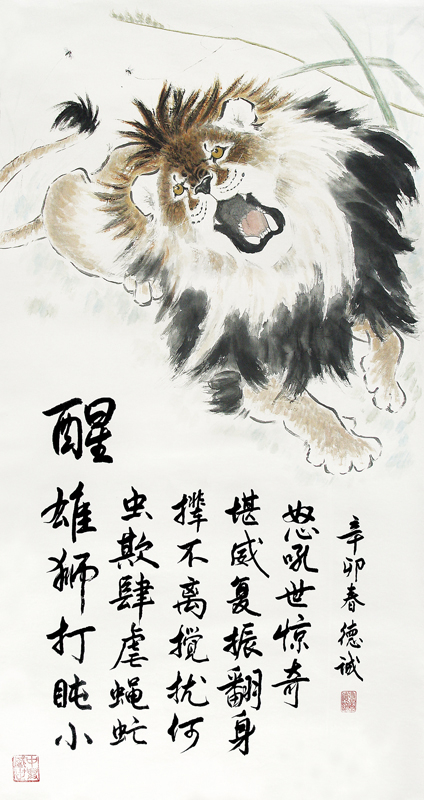 醒
雄狮打盹小
虫欺肆虐蝇虻
撵不离搅扰何
堪威复振翻身
怒吼世惊奇
辛卯春德诚